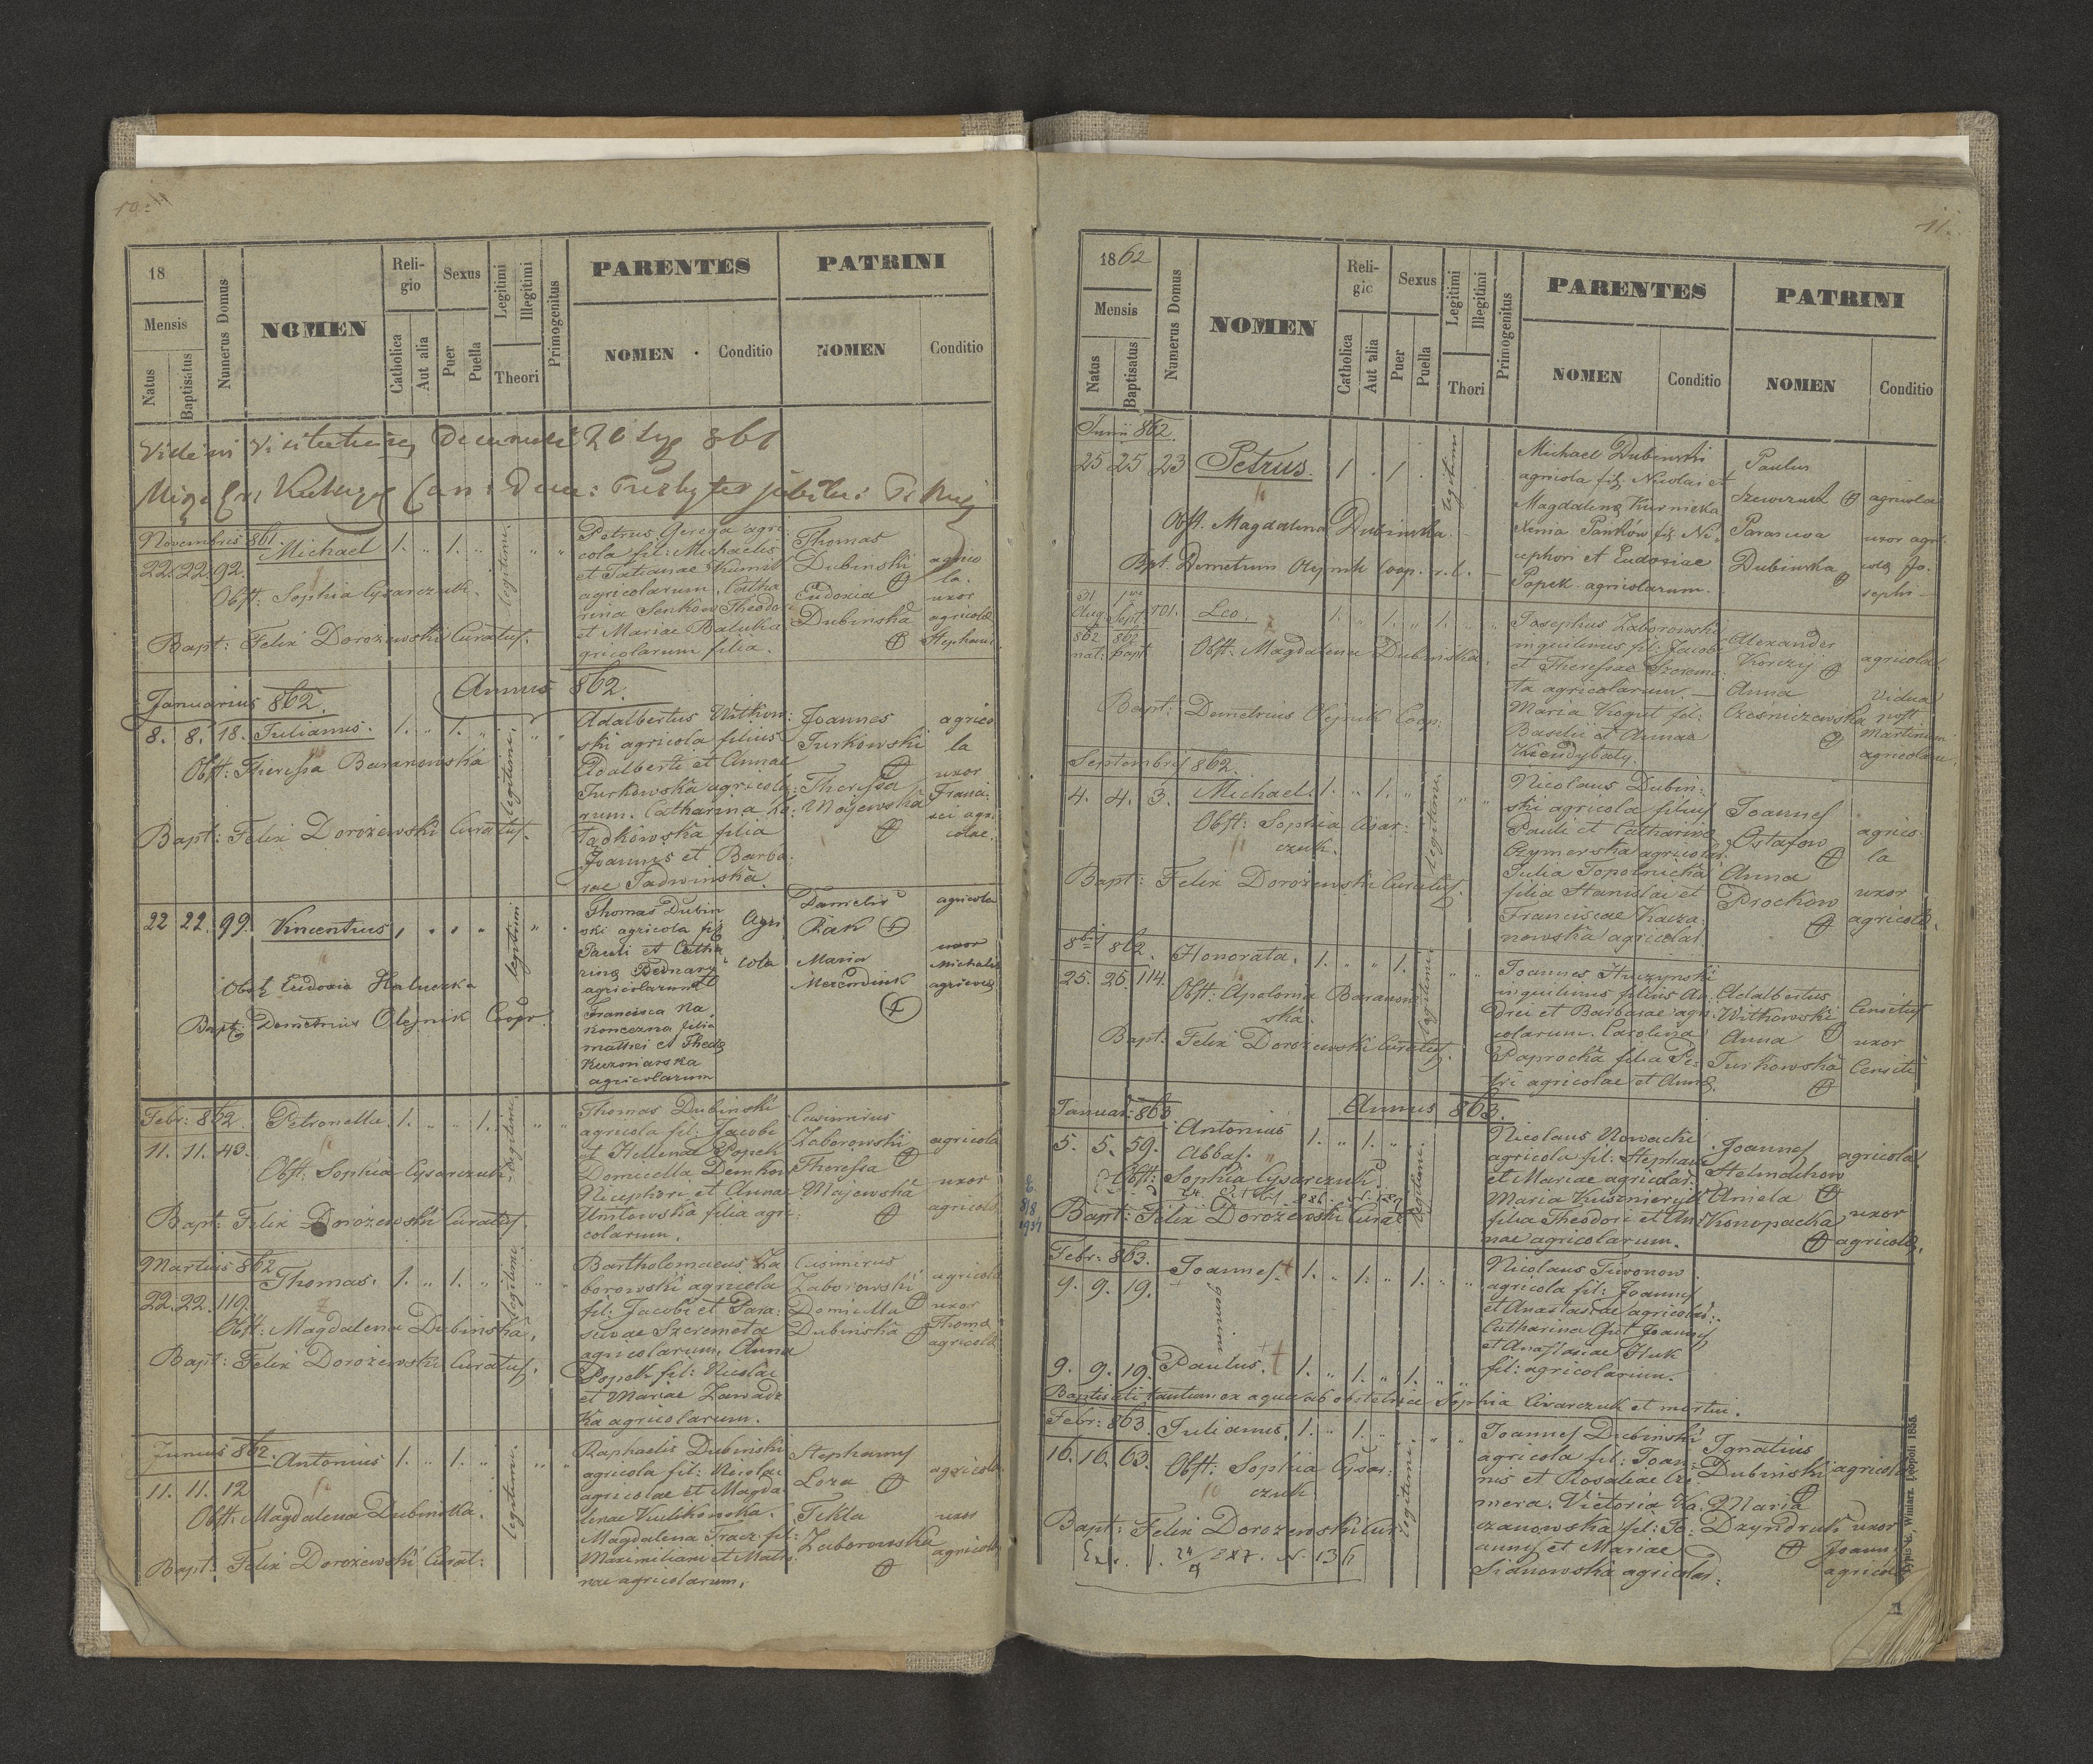 10.
18
Mensis
Natus
Baptisatus
Numerus Domus
NOMEN
Religio
Catholica
Aut alia
Sexus
Puer
Puella
Legitimi
Illegitimi
Theori
Primogenitus
PARENTES
NOMEN
Conditio
PATRINI
NOMEN
Conditio
Novembris 861.
22. 22. 92. Michael 1. „ 1. „ legitimi
Obst: Sophia Cysarczuk.
Bapt: Felix Dorożewski Curatus.
Petrus Gerega agri-
cola fil: Michaelis
et Tatianae
agricolarum. Catha
rina Senkow Theodori
et Mariae Baluka
gricolarum filia.
Thomas
Dubinski
Eudoxia
Dubinska
agrico
la.
uxor
agricolae
Stephani
Annus 862.
Januarius 862.
8. 8. 18. Julianus. 1. „ 1. „ legitimi
Obst: Theressa Baranowska
Bapt: Felix Dorożewski Curatus.
Adalbertus Witkow:
ski agricola filius
Adalberti et Annae
Turkowska agricola:
rum. Catharina
filia
Joannis et Barba
rae
Joannes
Turkowski
Theressa
Majewska
agrico
la
uxor
Franci:
sci agri
colae.
22 22. 99. Vincentius legitimi
Obst: Eudoxia Haluszka
Bapt: Demetrius Olejnik Coop.
Thomas Dubin
ski agricola fil
Pauli et Catha
rinae Bednarz
agricolarum et
Francisca Na
konczna filia
mathei et Theclae
Kuzniarska
agricolarum
Agri
cola
Daniela
Rak
Maria
agricola
uxor
Michalis
agricolae
Febr: 862. Petronella. 1. „ „ 1. legitimi
11. 11. 43.
Obst: Sophia Cysarczuk.
Bapt: Felix Dorożewski Curatus.
Thomas Dubinski
agricola fil: Jacobi
et Hellenae Popek
Domicella Demkow
Nicephori et Annae
filia agri
colarum.
Casimirus
Zaborowski
Theressa
Majewska
agricola
uxor
agricolae
Martius 862
22. 22. 119. Thomas. 1. „ 1. „ legitimi
Obst: Magdalena Dubinska.
Bapt: Felix Dorożewski Curatus.
Bartholomaeus Za
borowski agricola
fil: Jacobi et Para:
sevae Szeremeta
agricolarum, Anna
Popek fil: Nicolai
et Mariae Zawadz
ka agricolarum.
Casimirus
Zaborowski
Domicella
Dubinska
agricola
uxor
Thomae
agricolae
Junius 862. Antonius 1. „ 1. „ legitimi
11. 11. 12
Obst: Magdalena Dubinska.
Bapt: Felix Dorożewski Curat:
Raphaelis Dubinski
agricola fil: Nicolai
agricolae et Magda
lenae Kulikowska.
Magdalena Tracz fil:
Maximiliani et
nae agricolarum.
Stephanus
Loza
Tekla
Zaborowska
agricola
uxor
agricolae
11.
1862
Mensis
Natus
Baptisatus
Numerus Domus
NOMEN
Religio
Catholica
Aut alia
Sexus
Puer
Puella
Legitimi
Illegitimi
Thori
Primogenitus
PARENTES
NOMEN
Conditio
PATRINI
NOMEN
Conditio
Junii 862.
25 25 23 Petrus. 1 . 1 . legitimi
Obst. Magdalena Dubinska
Bpt. Demetrius Olejnik Coop. r. l.
Michael Dubinski
agricola fil. Nicolai et
Magdalenae Kurnicka
Xenia Pankow fil. Ni
cephori et Eudoxiae
Popek agricolarum.
Paulus
Szewczuk
Parascwa
Dubinska
agricola
uxor agri
colae Jo.
sephi
31 1
Aug. Sept. 101. Leo. 1. „ 1. „ 1.
862 862
nat: bapt
Obst. Magdalena Dubinska.
Bapt: Demetrius Olejnik Coop.
Josephus Zaborowski
inquilinus fil: Jacobi
et Theressae Szereme
ta agricolarum.
Maria Kogut fil:
Basilii et Annae
Alexander
Korczy
Anna
Cześniczewska
agricola
vidua
post
Martinum
agricolam.
Septembris 862.
4. 4. 3. Michael. 1. „ 1. „ legitimi
Obst: Sophia Cisar:
czuk.
Bapt: Felix Dorożewski Curatus.
Nicolaus Dubin:
ski agricola filius
Pauli et Catharinae
Czymerska agricolar:
Julia Topolnicka
filia Stanislai et
Franciscae Kacza
nowska agricolar.
Joannes
Ostafow
Anna
Prockow
agrico
la
uxor
agricolae.
8bris 862. Honorata. 1. „ „ 1. legitimi
25. 26. 114.
Obst: Apolonia Baranow
ska.
Bapt: Felix Dorożewski Curatus.
Joannes Huczynski
inquilinus filius An
drei et Barbarae agri
colarum. Carolina
Paprocka filia Pe:
tri agricolae et Annae.
Adalbertus
Witkowski
Anna
Turkowska
Censitus
uxor
Censiti
Annus 863.
Januar: 863
5. 5. 59. Antonius
Abbas. 1. „ 1. „ legitimi
Obst: Sophia Cysarczuk.
Bapt: Felix Dorożewski Curat.
Nicolaus Nowacki
agricola fil: Stephani
et Mariae agricolar.
Maria Kusznieryk
filia Theodori et An
nae agricolarum.
Joannes
Stelmachow
Amela
Konopacka
agricola
uxor
agricolae.
Febr: 863.
9. 9. 19. Joannes. † 1. „ 1. „ 1.
gemini
9. 9. 19. Paulus. † 1. „ 1. „ 1.
Nicolaus Tiwonow
agricola fil: Joannis
et Anastasiae agricolar:
Catharina Gut Joannis
et Anastasiae Huk
fil: agricolarum.
Baptisati tantum ex aqua ab obstetrice Sophia Cisarczuk et mortui.
Febr: 863.
16. 16. 63. Julianus. 1. „ 1. „ legitimi
Obst: Sophia Cysar:
czuk
Bapt: Felix Dorożewski Cur
Joannes Dubinski
agricola fil: Joan:
nis et Rosaliae Czy
mera. Victoria Ka
czanowska fil: Jo:
annis et Mariae
Sianowska agricolar:
Ignatius
Dubinski
Maria
Dzyndruk
agricola
uxor
Joannis
agricolae
Typis W. Winiarz. Leopoli 1855.
1